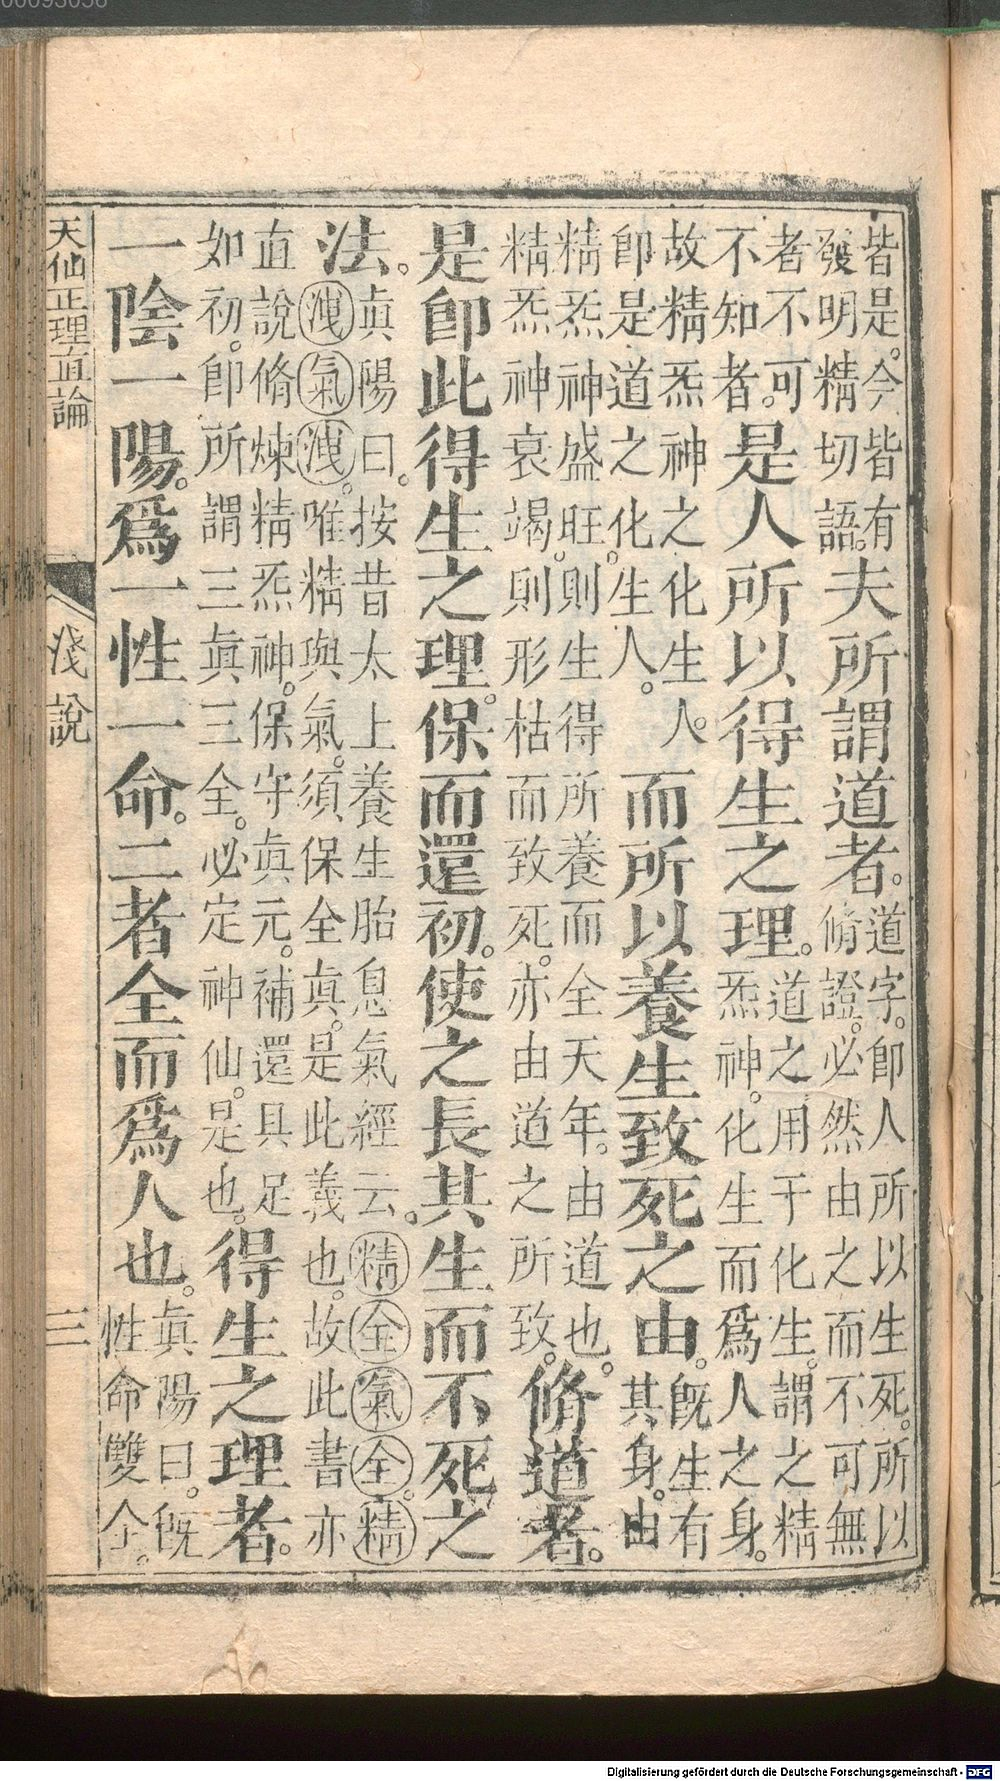 皆是。今皆有
發明精切語。
夫所謂道者。
道字。卽人所以生死。所以
脩證。必然由之而不可無
者不可
不知者。
是人所以得生之理。
道之用于化生。謂之精
炁神。化生而爲人之身。
故精炁神之化生人。
卽是道之化生人。
而所以養生致死之由。
旣生有
其身。由
精炁神盛旺。則生得所養而全天年。由道也。
精炁神衰竭。則形枯而致死。亦由道之所致。
脩道者。
是卽此得生之理。保而還初。使之長其生而不死之
法。
眞陽曰。按昔太上養生胎息氣經云。精全氣全。精
洩氣洩。唯精與氣。須保全眞。是此義也。故此書亦
直說脩煉精炁神。保守眞元。補還具足
如初。卽所謂三眞三全。必定神仙。是也。
得生之理者。
一陰一陽。爲一性一命。二者全而爲人也。
眞陽曰。旣
性命雙全。
天仙正理直論
淺說
三
Digitalisierung gefördert durch die Deutsche Forschungsgemeinschaft - DFG